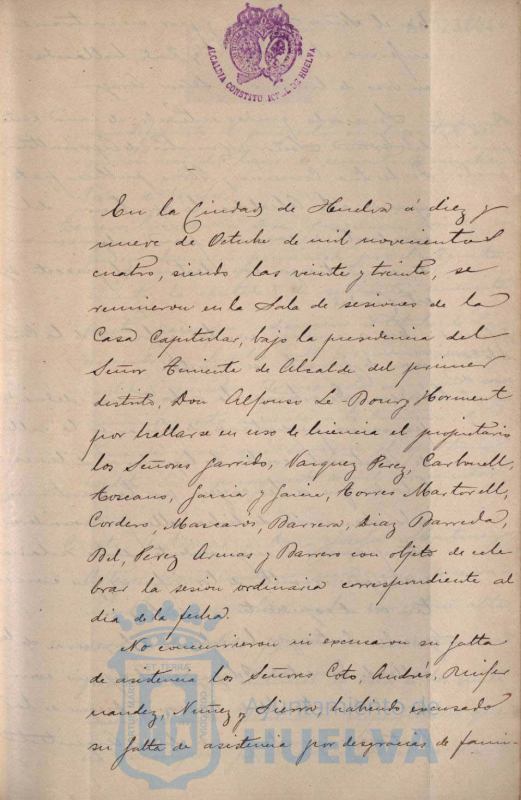 ALCALDIA CONSTITUCIONAL DE HUELVA
En la Ciudad de Huelva á diez y
nueve de Octubre de mil novecientos
cuatro, siendo las veinte y treinta, se
reunieron en la Sala de sesiones de la
Casa Capitular, bajo la presidencia del
Señor Teniente de Alcalde del primer
distrito, Don Alfonso Le-Bourg Horment
por hallarse en uso de licencia el propietario
los Señores Garrido, Vazquez Perez, Carbonell,
Toscano, Garcia y Garcia, Torres Martorell,
Cordero, Mascarós, Barrera, Diaz Barreda,
Bel, Perez Arenas y Barrero con objeto de cele
brar la sesion ordinaria correspondiente al
dia de la fecha.
No concurrieron ni excusaron su falta
de asistencia los Señores Coto, Andrés,
nandez, Nuñez y Sierra, habiendo excusado
su falta de asistencia por desgracias de fami-
Ayuntamiento de
HUELVA